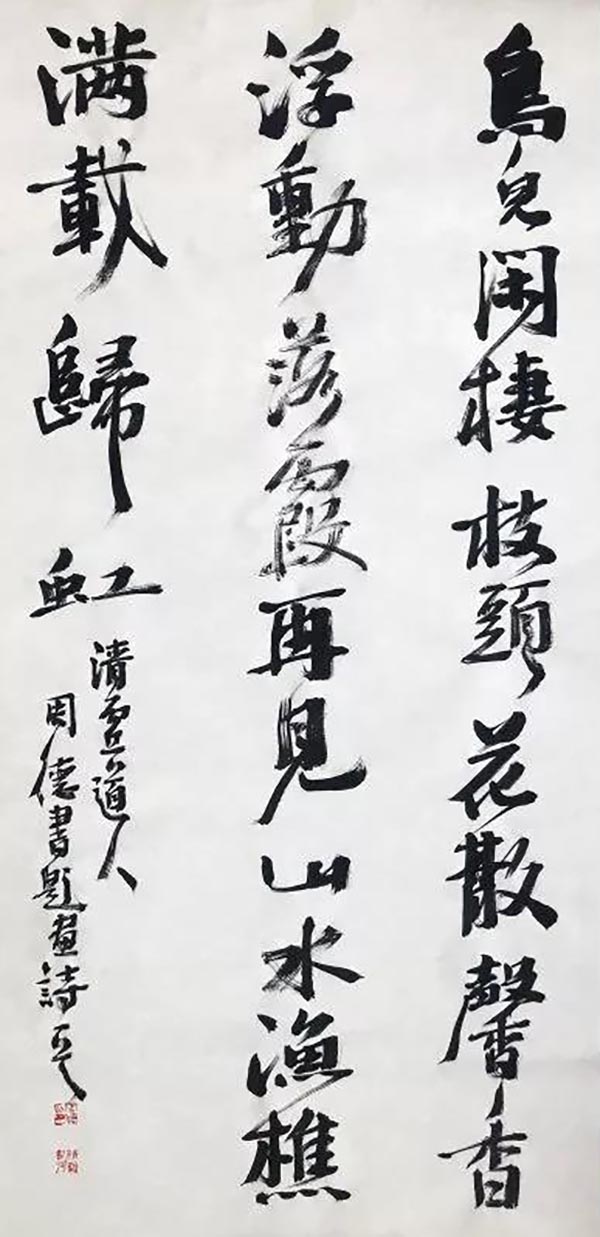 鳥兒閑棲枝頭花散馨香
浮動落霞再見山水漁樵
满載歸虹
清虛道人
周德書題畫詩